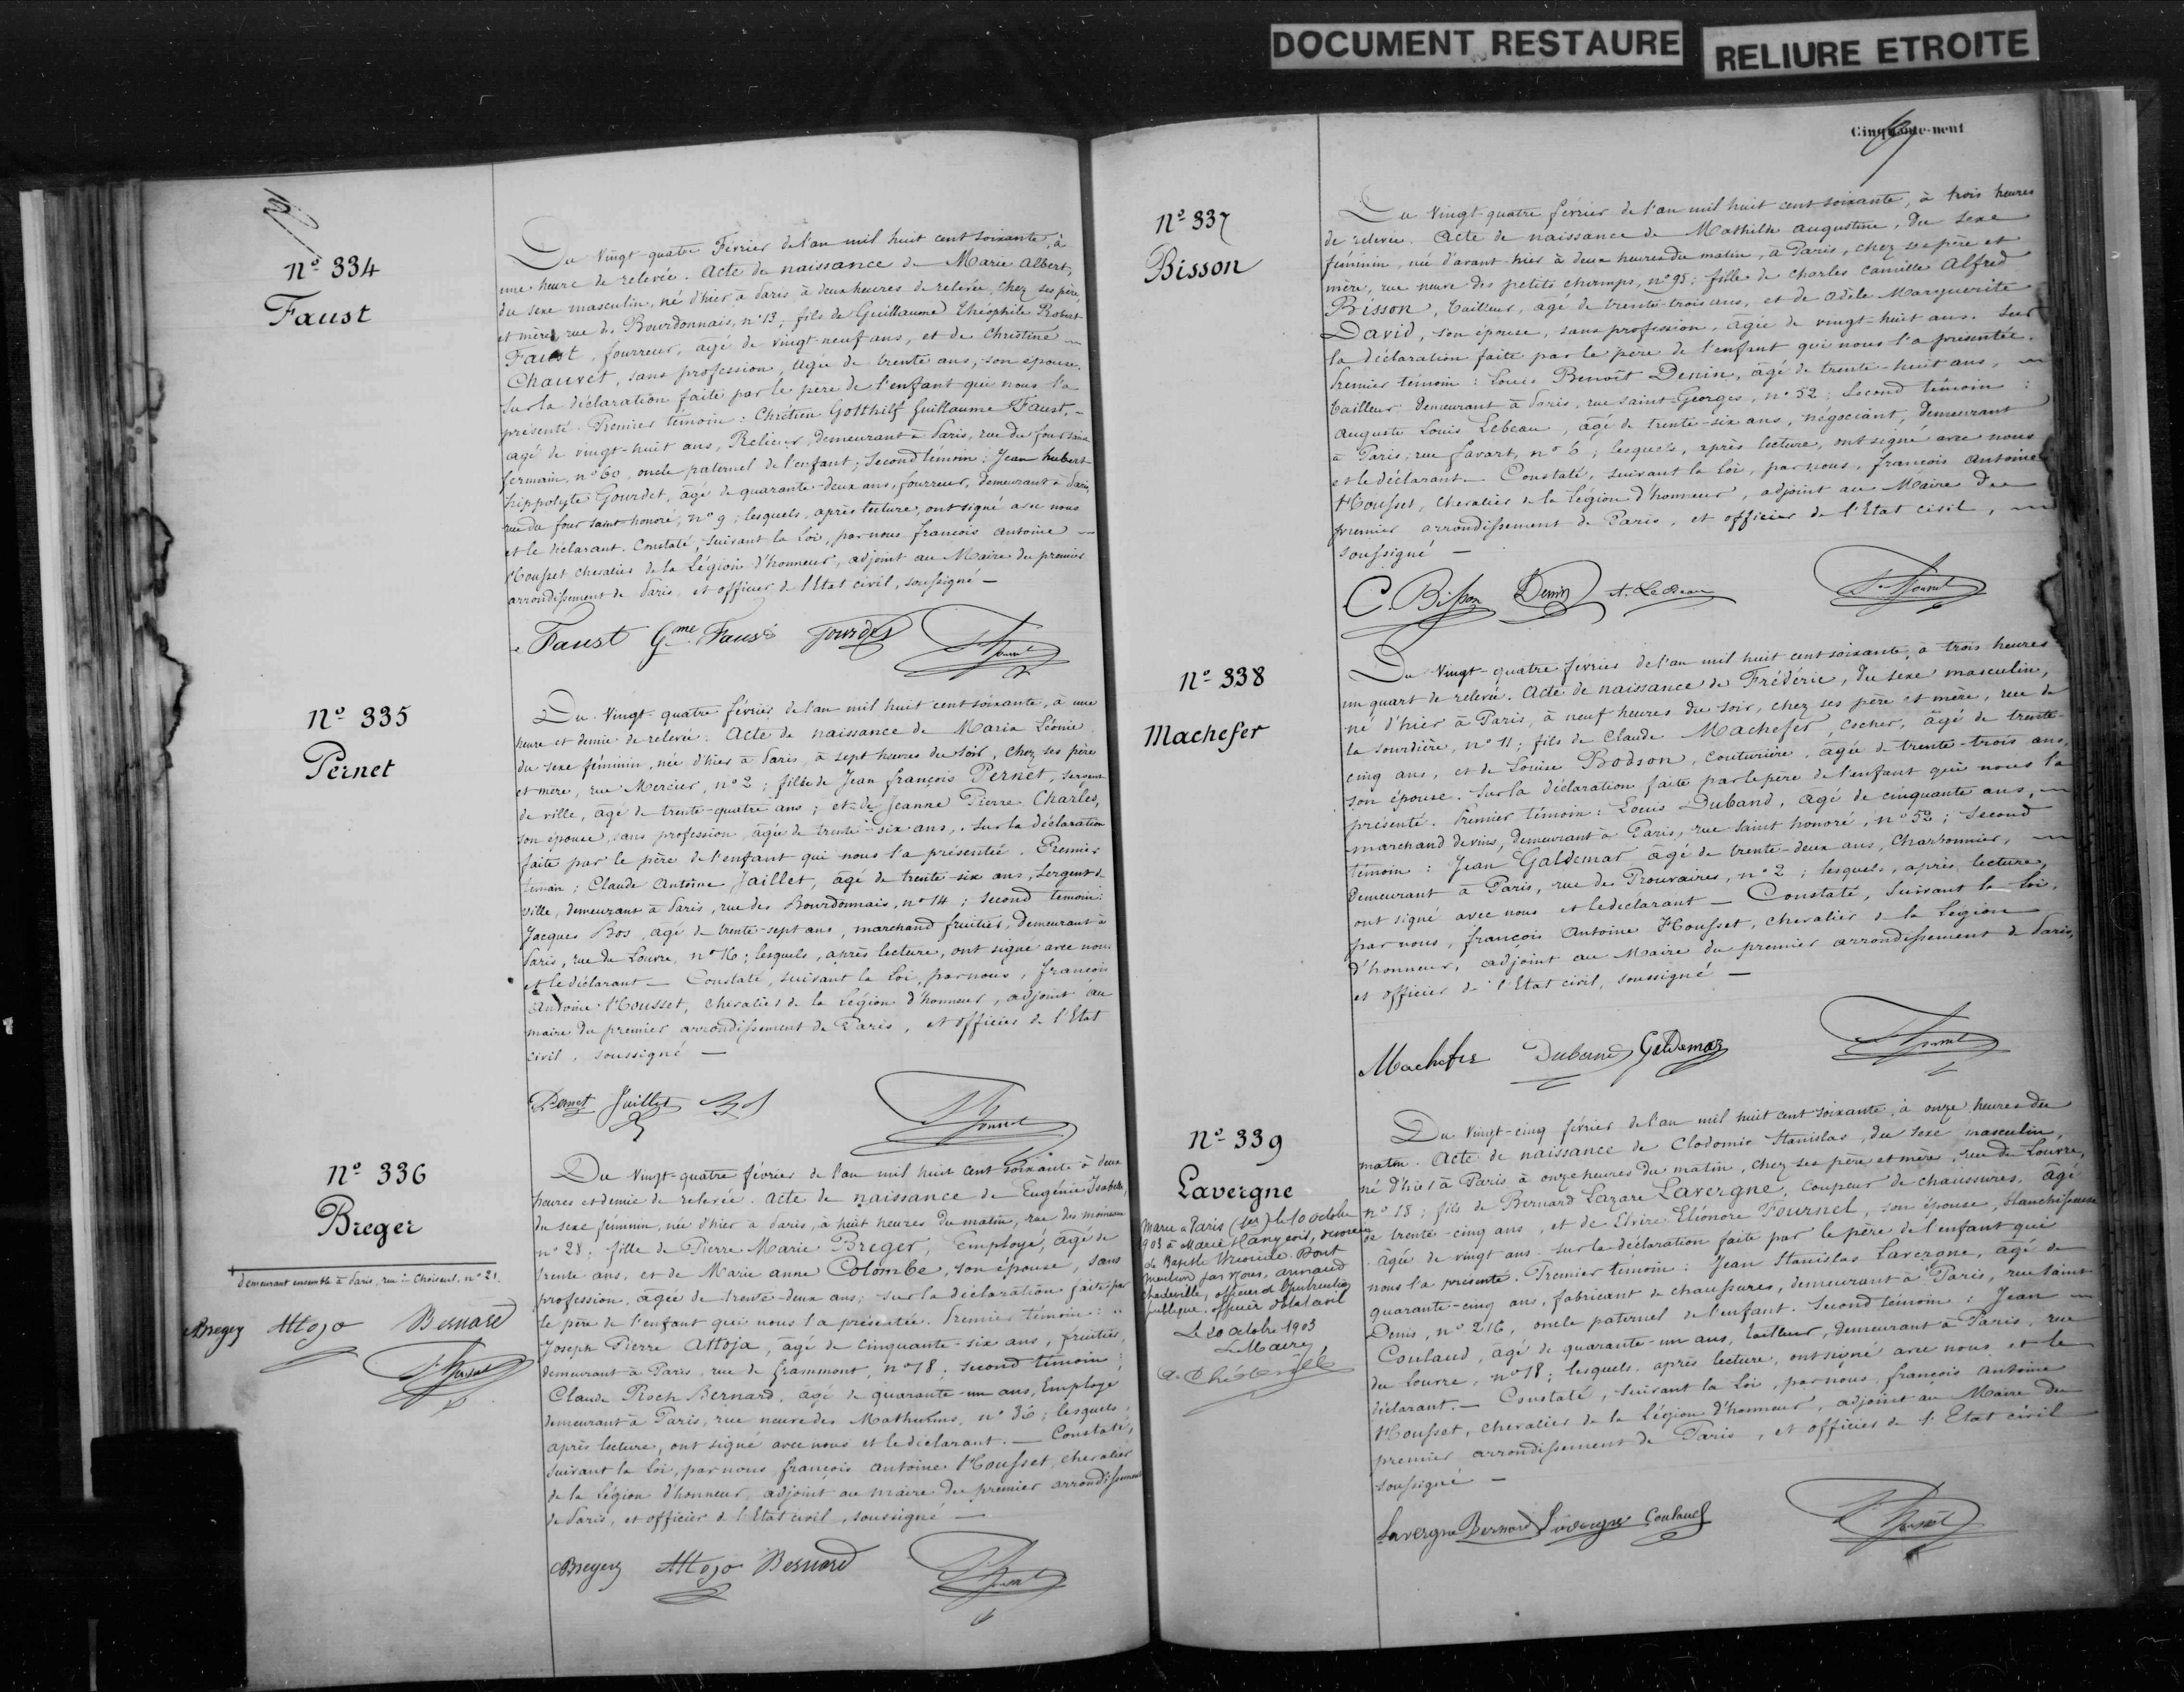 DOCUMENT RESTAURE
RELIURE ETROITE
Nº 334
Faust
Du Vingt-quatre Février de l'an mil huit cent soixante, à
une heure de relevée. Acte de naissance de Marie Albert,
du sexe masculin, né d'hier à Paris, à deux heures de relevée, chez ses père,
et mère, rue des Bourdonnais, nº 13; fils de Guillaume Théophile Robert
Faust, fourreur, âgé de vingt-neuf ans, et de Christine
Chauvet, sans profession, âgée de trente ans, son épouse.
Sur la déclaration faite par le père de l'enfant qui nous l'a
présenté. Premier témoin: Chrétien Gotthilf Guillaume Faust,
âgé de vingt-huit ans, Relieur, demeurant à Paris, rue du four saint
germain, nº 60, oncle paternel de l'enfant; Second témoin: Jean hubert
hippolyte Gourdet, âgé de quarante-deux ans, fourreur, demeurant à Paris,
rue du four saint-honoré, nº 9; lesquels, après lecture, ont signé avec nous
et le déclarant. Constaté, suivant la Loi, par nous françois Antoine
Housset, chevalier de la Légion d'honneur, adjoint au Maire du premier
arrondissement de Paris, et officier de l'Etat civil, soussigné —
Faust Gme Faust Gourdet
Nº 335
Pernet
Du Vingt-quatre février de l'an mil huit cent soixante, à une
heure et demie de relevée. Acte de naissance de Maria Léonie
du sexe féminin, née d'hier à Paris, à sept heures du soir, chez ses père
et mère, rue Mercier, nº 2; fille de Jean françois Pernet, sergent
de ville, âgé de trente-quatre ans; et de Jeanne Pierre Charles,
son épouse, sans profession, âgée de trente-six ans. Sur la déclaration
faite par le père de l'enfant qui nous l'a présentée. Premier
témoin: Claude Antoine Jaillet, âgé de trente-six ans, Sergent de
ville, demeurant à Paris, rue des Bourdonnais, nº 14; second témoin:
Jacques Bos, âgé de trente-sept ans, marchand fruitier, demeurant à
Paris, rue du Louvre, nº 16; lesquels, après lecture, ont signé avec nous
et le déclarant — Constaté, suivant la Loi, par nous, françois
Antoine Housset, chevalier de la Légion d'honneur, adjoint au
maire du premier arrondissement de Paris, et officier de l'Etat
civil, soussigné —
Pernet Jaillet Bos
Nº 336
Breger
demeurant ensemble à Paris, rue de Choiseul, nº 21.
Breger Attoja Bernard
Du Vingt-quatre février de l'an mil huit cent soixante à deux
heures et demie de relevée. Acte de naissance de Eugénie Isabelle,
du sexe féminin, née d'hier à Paris, à huit heures du matin, rue des moineaux
nº 28; fille de Pierre Marie Breger, Employé, âgé de
trente ans, et de Marie anne Colombe, son épouse, sans
profession, âgée de trente-deux ans; sur la déclaration faite par
le père de l'enfant qui nous l'a présentée. Premier témoin:
Joseph Pierre Attoja, âgé de cinquante-six ans, fruitier,
demeurant à Paris, rue de Grammont, nº 18; second témoin:
Claude Roch Bernard, âgé de quarante-un ans, Employé
demeurant à Paris, rue neuve des Mathurins, nº 36; lesquels,
après lecture, ont signé avec nous et le déclarant. — Constaté,
suivant la Loi, par nous françois antoine Housset, chevalier
de la Légion d'honneur, adjoint au maire du premier arrondissement
de Paris, et officier de l'Etat civil, soussigné —
Breger Attoja Bernard
Cinquante-neuf
Nº 337
Bisson
Du Vingt-quatre février de l'an mil huit cent soixante, à trois heures
de relevée. Acte de naissance de Mathilde augustine, du sexe
féminin, née d'avant-hier à deux heures du matin, à Paris, chez ses père et
mère, rue neuve des petits champs, nº 95; fille de Charles Camille Alfred
Bisson, tailleur, âgé de trente-trois ans, et de Adèle Marguerite
David, son épouse, sans profession, âgée de vingt-huit ans. Sur
la déclaration faite par le père de l'enfant qui nous l'a présentée.
Premier témoin: Louis Benoît Denin, âgé de trente-huit ans,
tailleur, demeurant à Paris, rue saint-Georges, nº 52; Second témoin:
Auguste Louis Lebeau, âgé de trente-six ans, négociant, demeurant
à Paris, rue favart, nº 6; lesquels, après lecture, ont signé avec nous
et le déclarant — Constaté, suivant la Loi, par nous, françois Antoine
Housset, chevalier de la Légion d'honneur, adjoint au Maire du
premier arrondissement de Paris, et officier de l'Etat civil,
soussigné —
C. Bisson Denin A. LeBeau
Nº 338
Machefer
Du Vingt-quatre février de l'an mil huit cent soixante, à trois heures
un quart de relevée. Acte de naissance de Frédéric, du sexe masculin,
né d'hier à Paris, à neuf heures du soir, chez ses père et mère, rue de
la sourdière, nº 11; fils de Claude Machefer, cocher, âgé de trente-
cinq ans, et de Louise Bodson, couturière, âgée de trente-trois ans,
son épouse. Sur la déclaration faite par le père de l'enfant qui nous l'a
présenté. Premier témoin: Louis Duband, âgé de cinquante ans,
marchand de vins, demeurant à Paris, rue saint honoré, nº 52; Second
témoin: Jean Galdemar âgé de trente-deux ans, charbonnier,
demeurant à Paris, rue des Prouvaires, nº 2; lesquels, après lecture,
ont signé avec nous et le déclarant — Constaté, suivant la loi,
par nous, françois Antoine Housset, chevalier de la Légion
d'honneur, adjoint au Maire du premier arrondissement de Paris,
et officier de l'Etat civil, soussigné —
Machefer Duband Galdemar
Nº 339
Lavergne
Marié à Paris (1er) le 10 octobre
1903 à Marie François, divorcée
de Baptiste Dont
mention par nous, Armand
officier d'Instruction
publique, officier d'Etat civil
Le 20 Octobre 1903
Le Maire
Du Vingt-cinq février de l'an mil huit cent soixante, à onze heures du
matin. Acte de naissance de Clodomir Stanislas, du sexe masculin,
né d'hier à Paris à onze heures du matin, chez ses père et mère, rue du Louvre,
nº 18; fils de Bernard Lazare Lavergne, coupeur de chaussures, âgé
de trente-cinq ans, et de Elvire Eléonore Fournel, son épouse, blanchisseuse
âgée de vingt ans. Sur la déclaration faite par le père de l'enfant qui
nous l'a présenté. Premier témoin: Jean Stanislas Lavergne, âgé de
quarante-cinq ans, fabricant de chaussures, demeurant à Paris, rue Saint
Denis, nº 216, oncle paternel de l'enfant. Second témoin: Jean
Coulaud, âgé de quarante-un ans, tailleur, demeurant à Paris, rue
du Louvre, nº 18; lesquels, après lecture, ont signé avec nous et le
déclarant. — Constaté, suivant la Loi, par nous, françois Antoine
Housset, chevalier de la Légion d'honneur, adjoint au Maire du
premier arrondissement de Paris, et officier de l'Etat civil
soussigné —
Lavergne Bernard Lavergne Coulaud